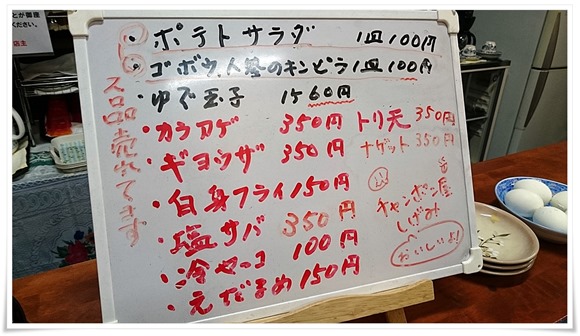 ・ポテトサラダ 1皿100円
・ゴボウ人参のキンピラ1皿100円
・ゆで玉子 1ケ60円
・カラアゲ 350円
・ギョウザ 350円
・白身フライ150円
・塩サバ 350円
・冷ヤーコ 100円
・えだまめ150円
トリ天 350円
ナゲット 350円
チャンポン屋
しげみ
おいしいよ!
ス品売れてます
店主